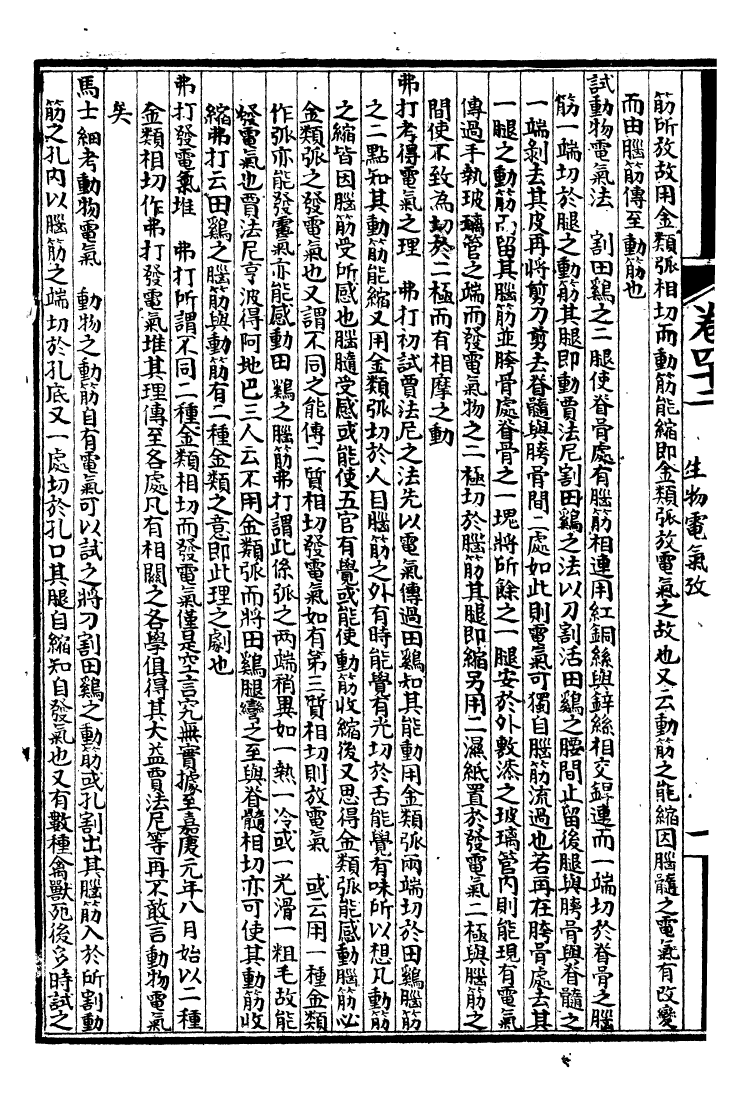 卷四十二　生物電氣攷　一
筋所放故用金類弧相切而動筋能縮即金類弧放電氣之故也又云動筋之能縮因腦髓之電氣有改變
而由腦筋傳至動筋也
試動物電氣法　割田鷄之二腿使脊骨處有腦筋相連用紅銅絲與鋅絲相交銲連而一端切於脊骨之腦
筋一端切於腿之動筋其腿即動賈法尼割田鷄之法以刀割活田鷄之腰間止留後腿與胯骨與脊髓之
一端剝去其皮再將剪刀剪去脊髓與胯骨間二處如此則電氣可獨自腦筋流過也若再在胯骨處去其
一腿之動筋而留其腦筋並胯骨處脊骨之一塊將所餘之一腿安於外敷漆之玻璃管內則能現有電氣
傳過手執玻璃管之端而發電氣物之二極切於腦筋其腿即縮另用二濕紙置於發電氣二極與腦筋之
間使不致為切於二極而有相摩之動
弗打考得電氣之理　弗打初試賈法尼之法先以電氣傳過田鷄知其能動用金類弧兩端切於田鷄腦筋
之二點知其動筋能縮又用金類弧切於人目腦筋之外有時能覺有光切於舌能覺有味所以想凡動筋
之縮皆因腦筋受所感也腦髓受感或能使五官有覺或能使動筋收縮後又思得金類弧能感動腦筋必
金類弧之發電氣也又謂不同之能傳二質相切發電氣如有第三質相切則放電氣　或云用一種金類
作弧亦能發電氣亦能感動田鷄之腦筋弗打謂此係弧之兩端稍異如一熱一冷或一光滑一粗毛故能
發電氣也賈法尼亨波得阿地巴三人云不用金類弧而將田鷄腿彎之至與脊髓相切亦可使其動筋收
縮弗打云田鷄之腦筋與動筋有二種金類之意即此理之劇也
弗打發電氣堆　弗打所謂不同二種金類相切而發電氣僅是空言究無實據至嘉慶元年八月始以二種
金類相切作弗打發電氣堆其理傳至各處凡有相關之各學俱得其大益賈法尼等再不敢言動物電氣
矣
馬士細考動物電氣　動物之動筋自有電氣可以試之將刀割田鷄之動筋或孔割出其腦筋入於所割動
筋之孔內以腦筋之端切於孔底又一處切於孔口其腿自縮知自發氣也又有數種禽獸死後多時試之